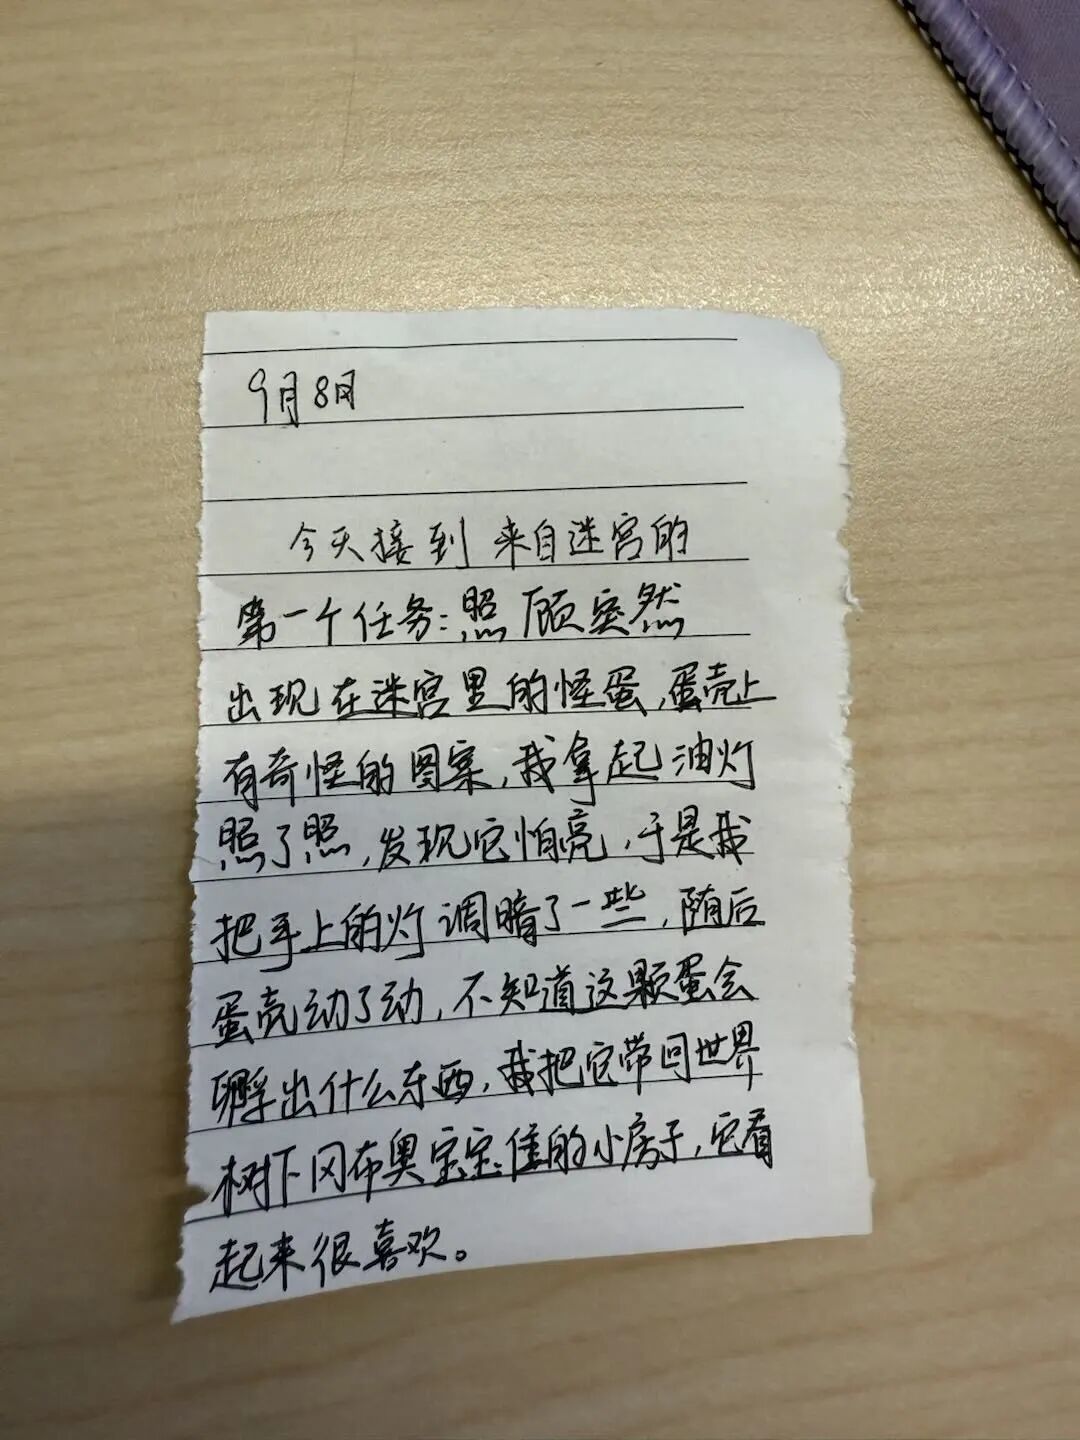 9月8日
今天接到来自迷宫的
第一个任务:照顾突然
出现在迷宫里的怪蛋,蛋壳上
有奇怪的图案,我拿起油灯
照了照,发现它怕亮,于是我
把手上的灯调暗了一些,随后
蛋壳动了动,不知道这颗蛋会
孵出什么东西,我把它带回世界
树下冈布奥宝宝住的小房子,它看
起来很喜欢。